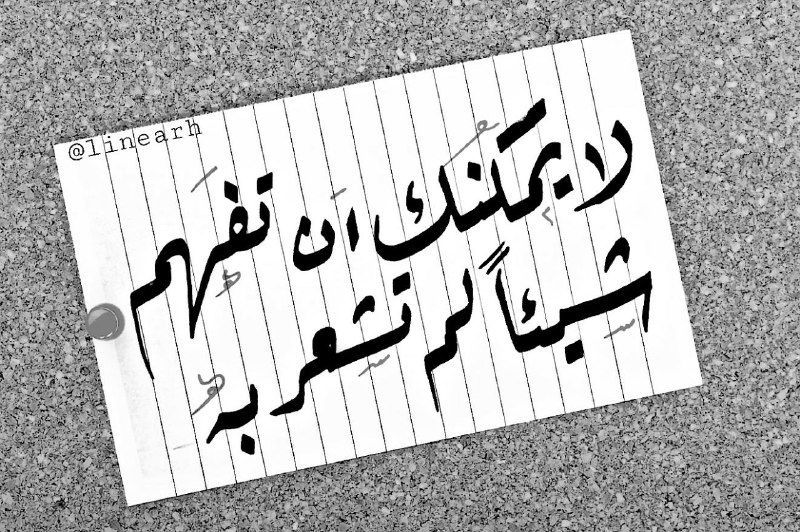 @linearh
لا يمكنك ان تفهم
شيئاً لم تشعر به